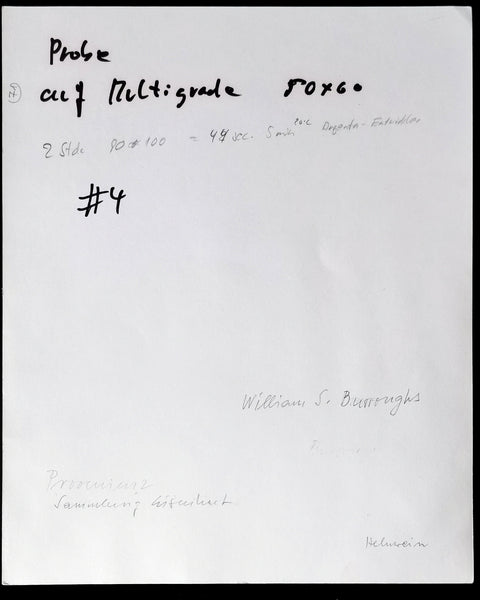 Probe
auf Multigrade 50x60
2 Stde 80 # 100 = 44 sec. 5 min 20°C Dopento - Entwickler
#4
William S. Burroughs
Provenienz
Sammlung
Helnwein